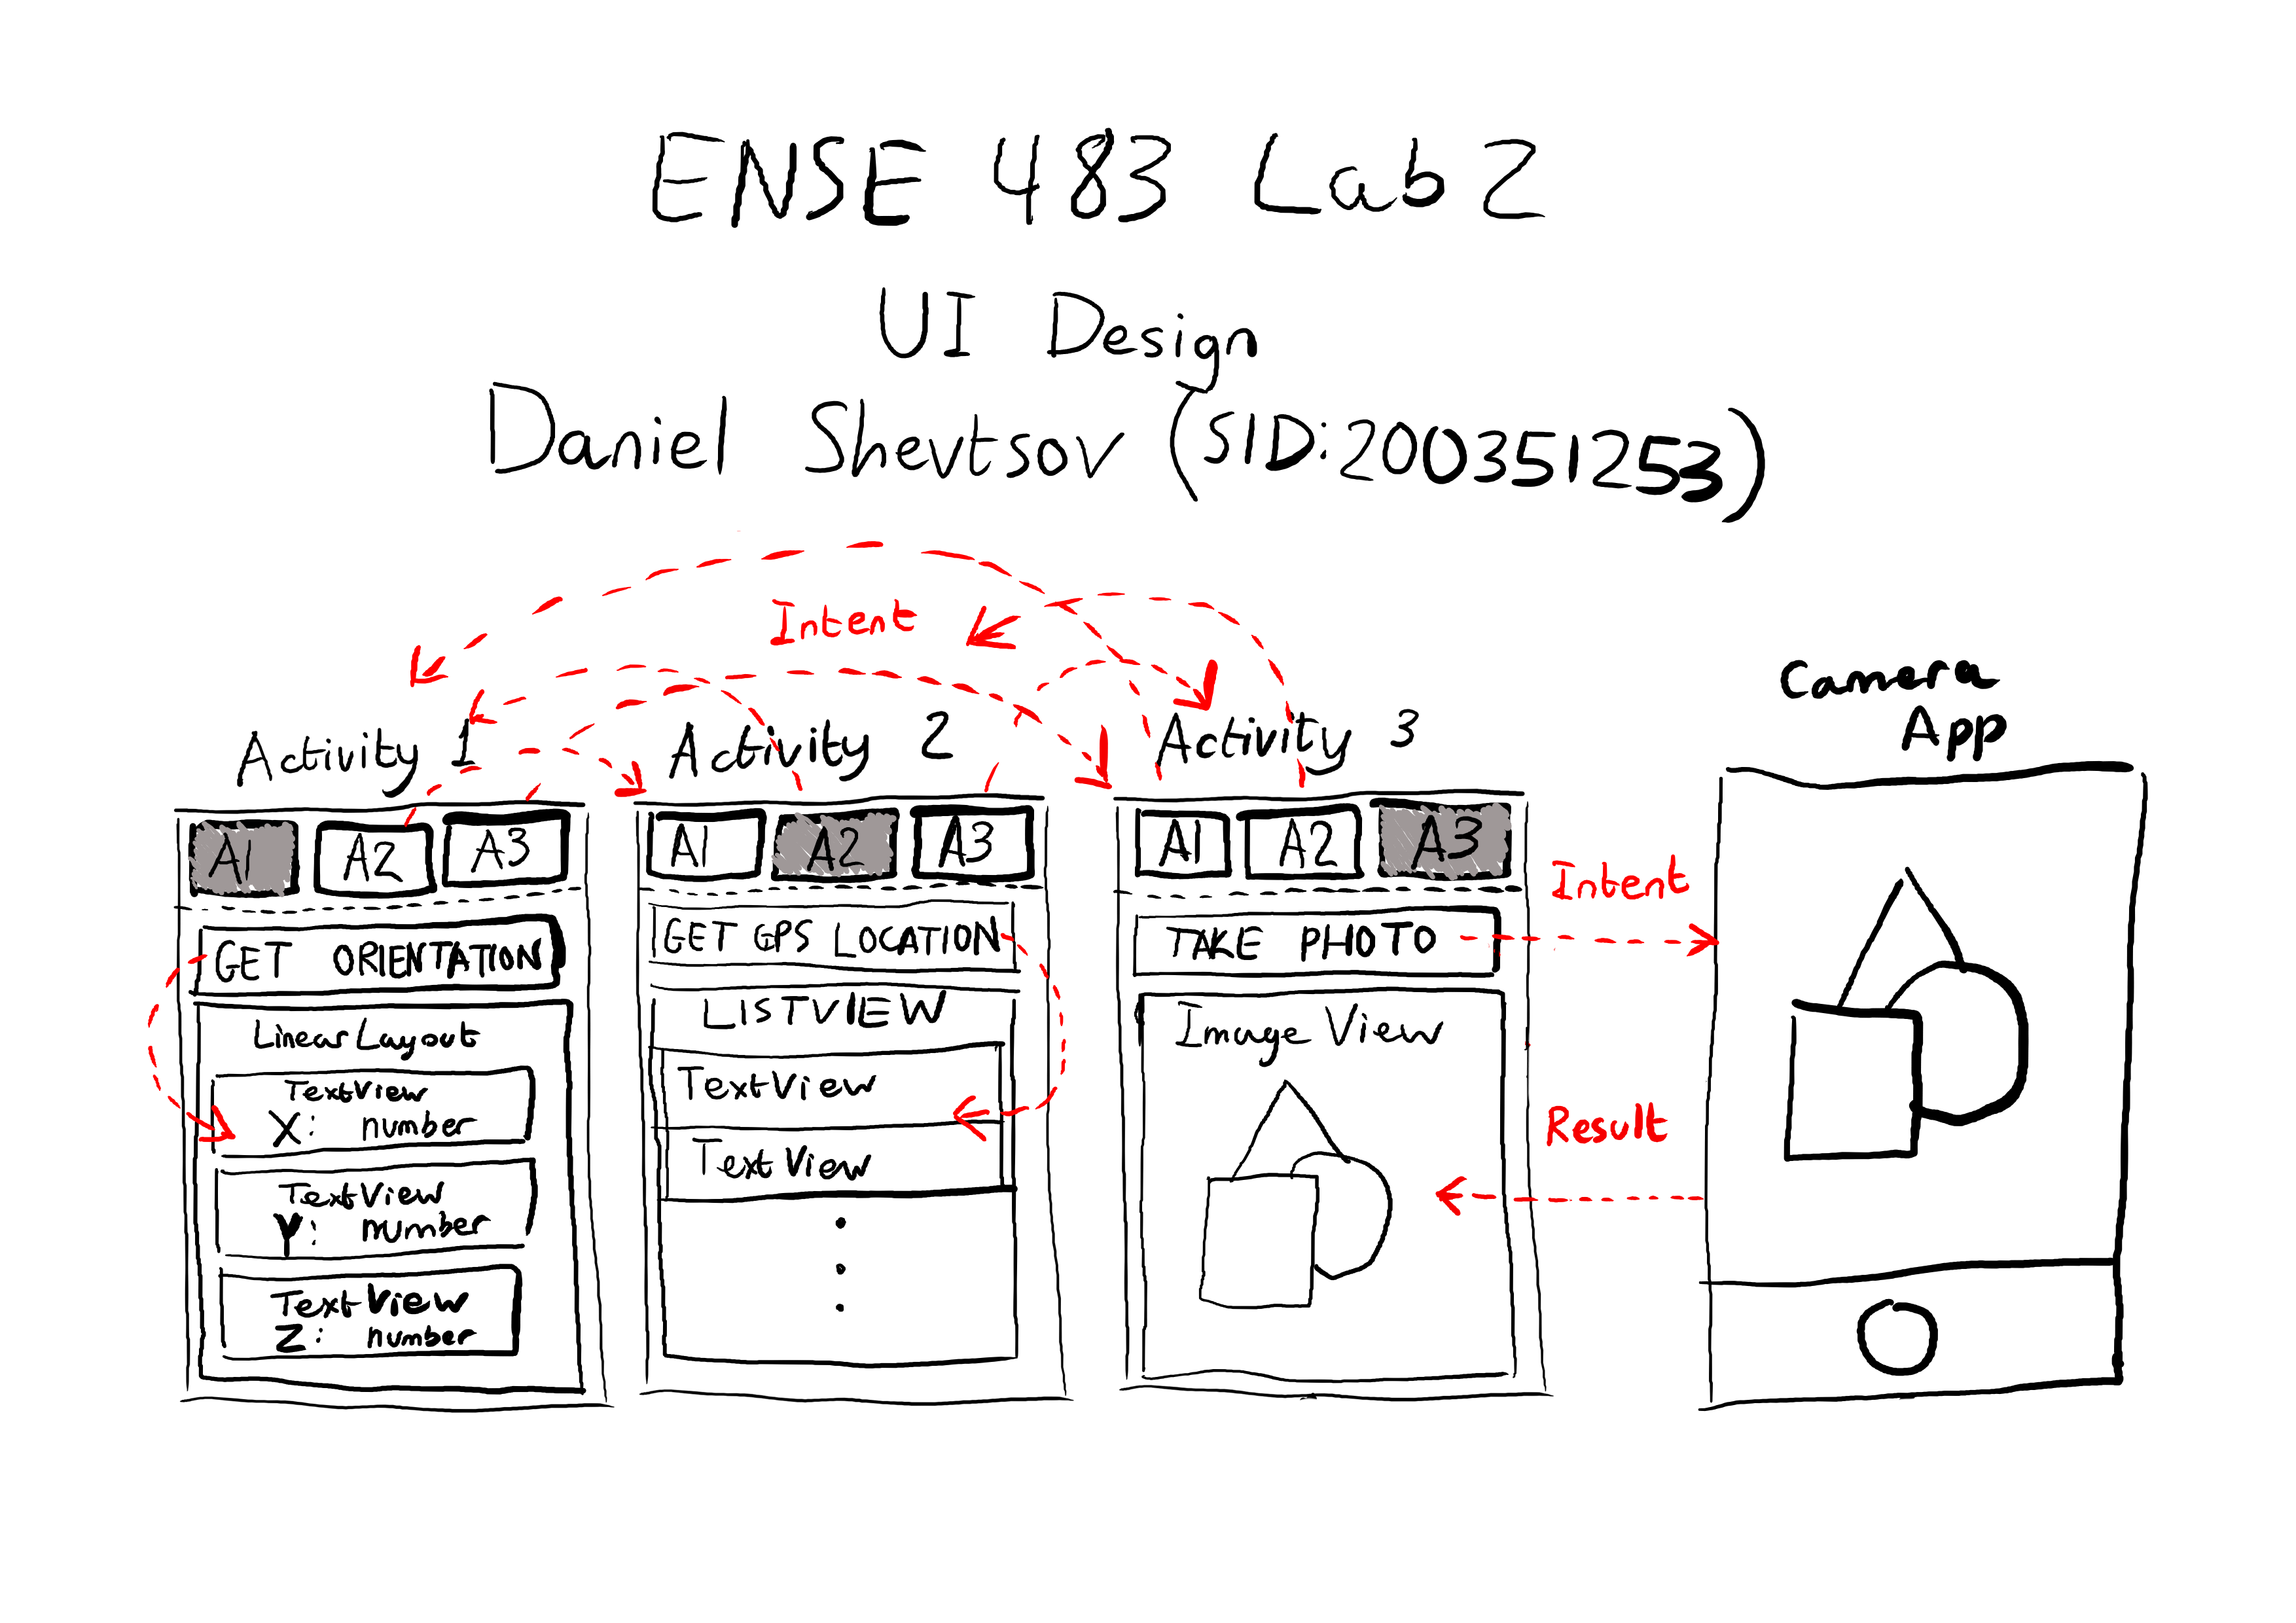 ENSE 483 Lab 2
UI Design
Daniel Shevtsov (SID:200351253)
Intent
Activity 1
A1 A2 A3
GET ORIENTATION
LinearLayout
TextView
X: number
TextView
Y: number
TextView
Z: number
Activity 2
A1 A2 A3
GET GPS LOCATION
LISTVIEW
TextView
TextView
Activity 3
A1 A2 A3
TAKE PHOTO
Image View
Intent
Result
Camera
App